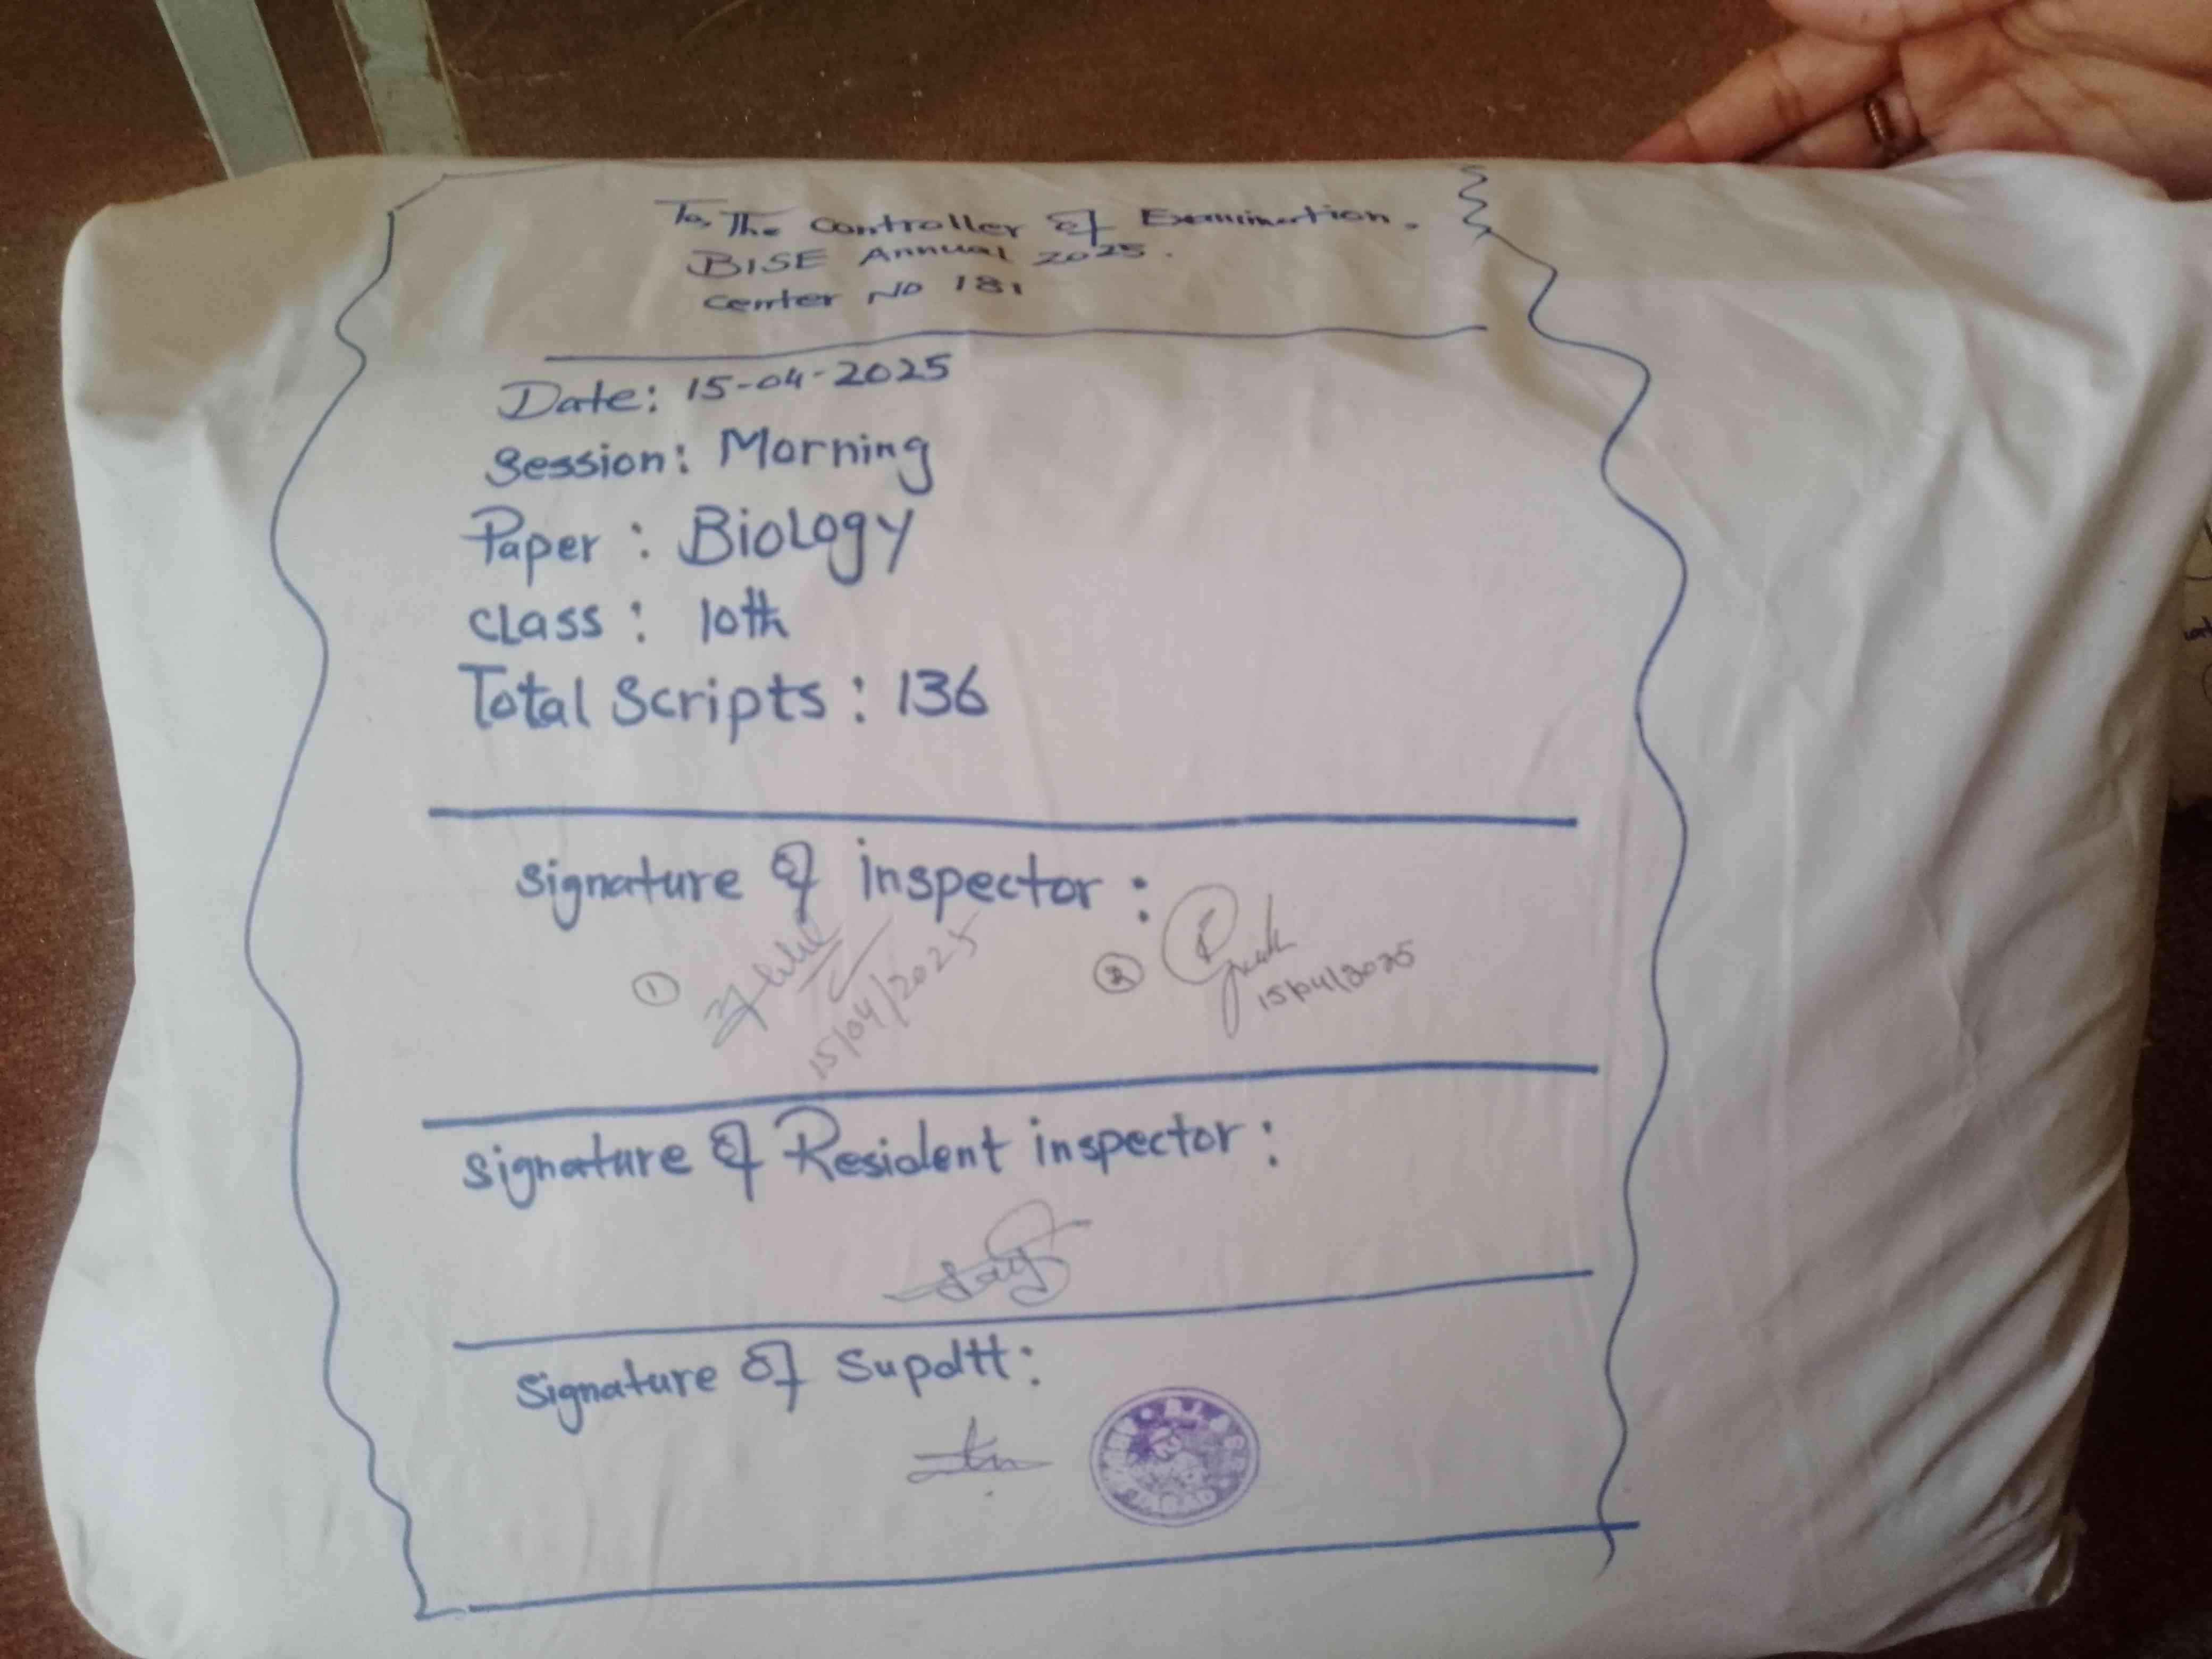 To, The Controller of Examination.
BISE Annual 2025.
Center No 181
Date: 15-04-2025
Session: Morning
Paper: Biology
Class: 10th
Total Scripts: 136
Signature of inspector:
①
15/04/2025
②
15/04/2025
Signature of Resident inspector:
Signature of Supdtt: